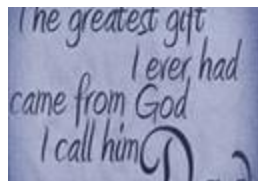 The greatest gift
I ever had
came from God
I call him